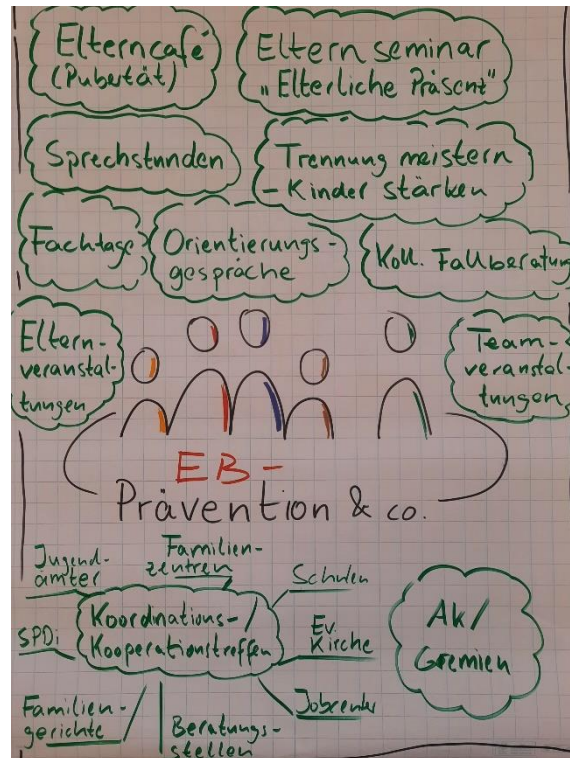 Elterncafé
(Pubertät)
Elternseminar
"Elterliche Präsent"
Sprechstunden
Trennung meistern
- Kinder stärken
Fachtage
Orientierungs-
gespräche
Koll. Fallberatung
Eltern-
veranstal-
tungen
Team-
veranstal-
tungen
EB -
Prävention & co.
Jugend-
ämter
Familien-
zentren
Schulen
SPDi
Koordinations-/
Kooperationstreffen
Ev.
Kirche
Ak/
Gremien
Familien-
gerichte
Beratungs-
stellen
Jobcenter